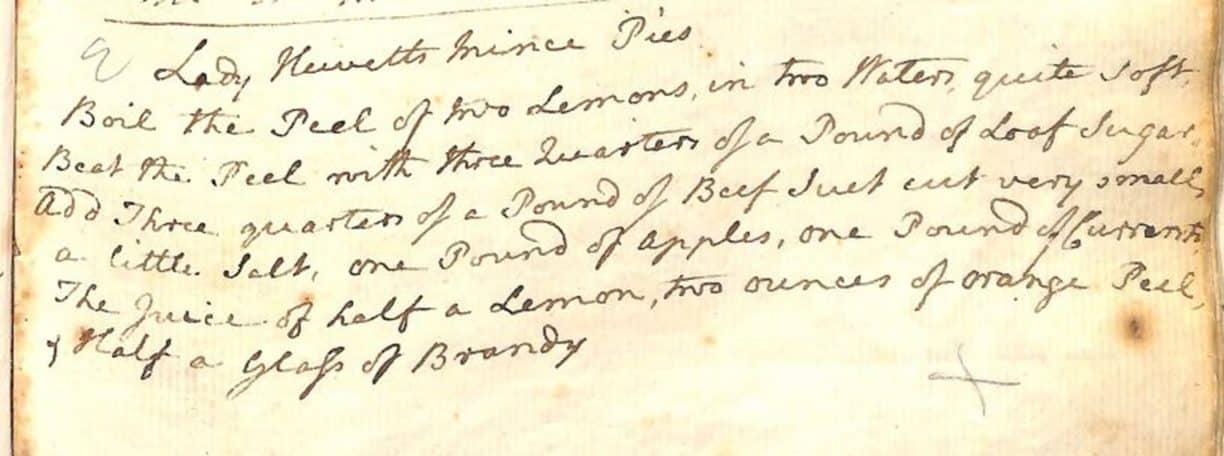 Lady Hewetts Mince Pies
Boil the Peel of two Lemons, in two Waters, quite soft.
Beat the Peel with three Quarters of a Pound of Loaf Sugar.
Add Three quarters of a Pound of Beef Suet cut very small,
a little Salt, one Pound of apples, one Pound of Currants
The Juice of half a Lemon, two ounces of orange Peel,
& Half a Glass of Brandy